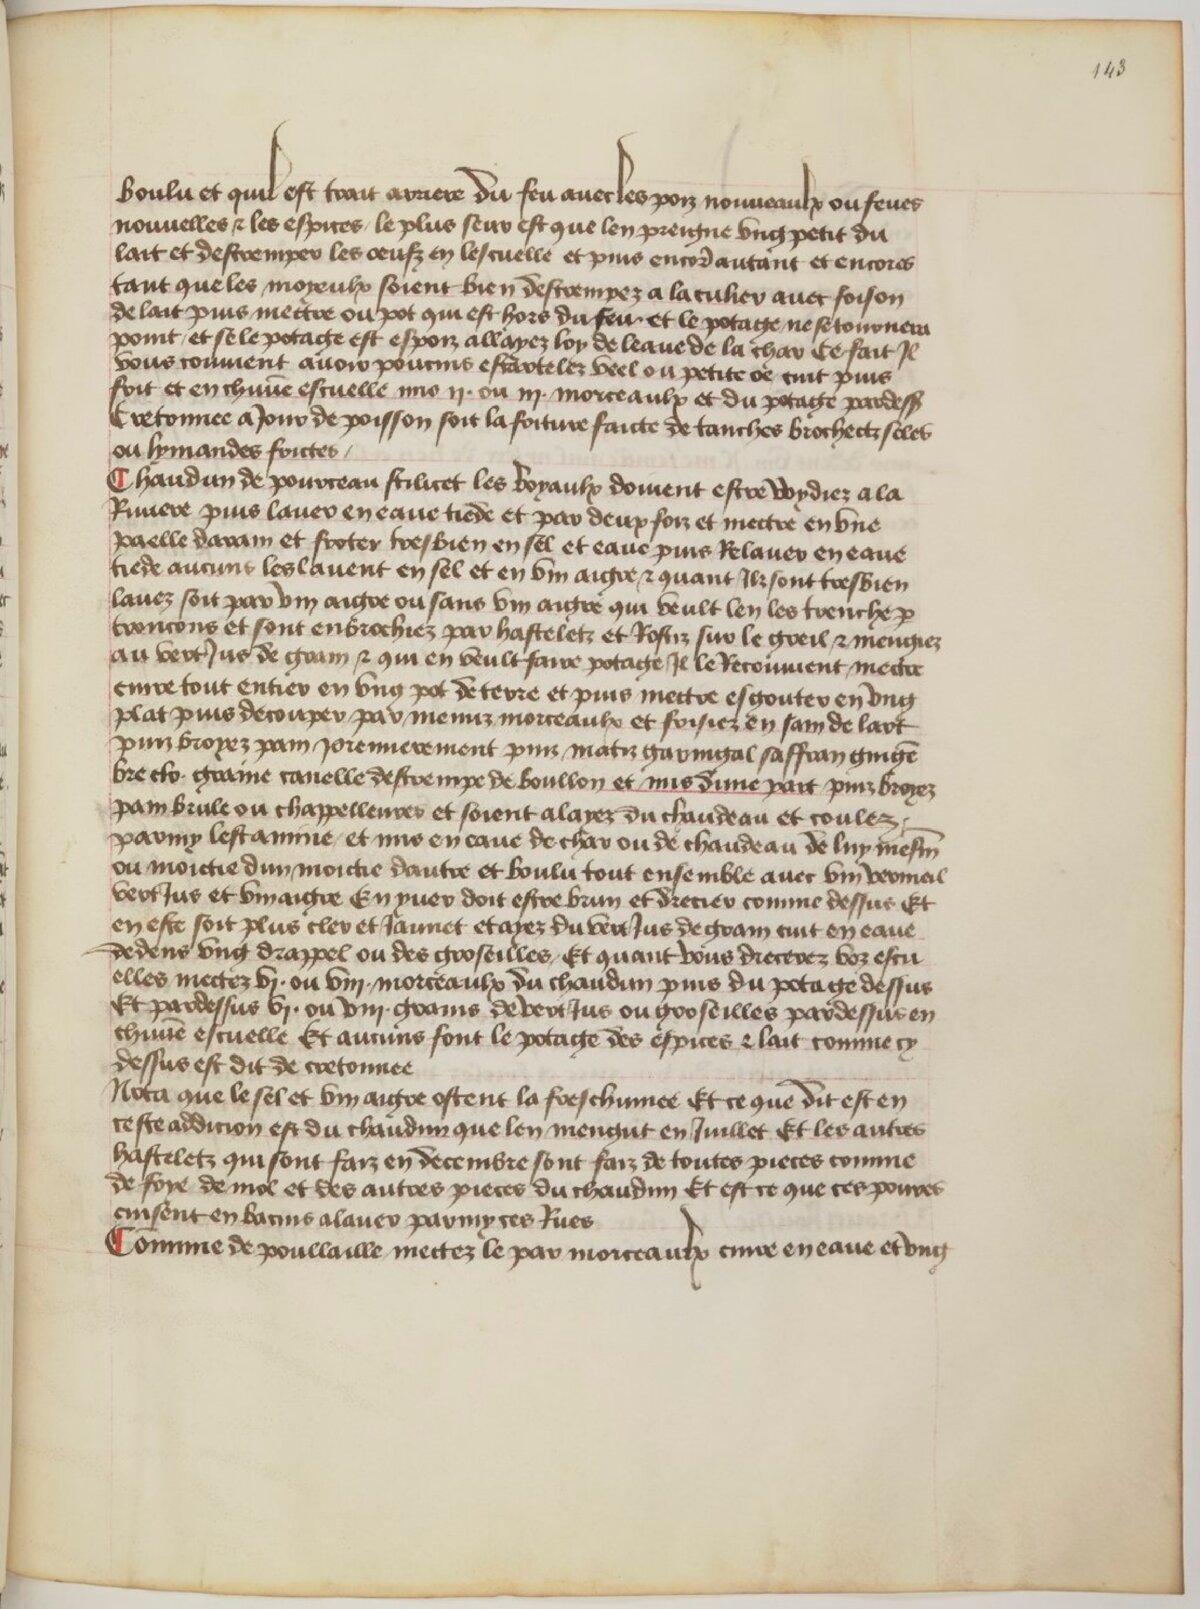 143
boulu et quil est trait arriere du feu avec les pois nouveaulx ou feves
nouvelles ⁊ les espices / le plus seur est que len preigne ung petit du
lait et destremper les oeufz en lescuelle et puis encor autant et encores
tant que les moyeulx soient bien destrempez a la culier avec foison
de lait puis mectre ou pot qui est hors du feu . et le potage ne se tournera
point / et se le potage est espoiz allayez loy de leaue de la char Ce fait Il
vous convient avoir poucins escartelez veel ou petite oe cuit puis
frit et en chũne escuelle mis ij. ou iij. morceaulx et du potage pardess9
Cretonnee a Jour de poisson soit la friture faicte de tanches brochectz soles
ou lymandes frictes /
Chaudun de pourceau scilicet les boyaulx doivent estre vuydiez a la
Riviere puis laver en eaue tiede et par deux foiz et mectre en une
paelle darain et froter tresbien en sel et eaue puis Relaver en eaue
tiede aucuns les lavent en sel et en vin aigre ⁊ quant Ilz sont tresbien
lavez soit par vin aigre ou sans vin aigre qui veult len les trenche p
troncons et sont enbrochiez par hasteletz et Rostiz sur le greil ⁊ mengiez
au vert Jus de grain ⁊ qui en veult faire potage Il le Reconvient mectre
cuire tout entier en ung pot de terre et puis mectre esgouter en ung
plat puis decouper par menuz morceaulx et frisiez en sain de lart
puis broyez pain premierement puis matiz garingal saffran gingē
bre clo. graine canelle destrempe de boullon et mis dune part puis broyez
pain brule ou chappelleures et soient alayez du chaudeau et coulez
parmy lestamine / et mis en eaue de char ou de chaudeau de luy mesm̃
ou moictie dun moictie dautre et boulu tout ensemble avec vin vermeil
vertJus et vinaigre En yver doit estre brun et drecier comme dessus Et
en este soit plus cler et Jaunet et ayez du vertJus de grain cuit en eaue
dedens ung drappel ou des groseilles / Et quant vous drecerez voz escu
elles mectez vj. ou viij. morceaulx du chaudun puis du potage dessus
Et pardessus vj. ou viij. grains de vertJus ou groseilles pardessus en
chũne escuelle Et aucuns font le potage des espices ⁊ lait comme cy
dessus est dit de cretonnee
Nota que le sel et vin aigre ostent la freschumee Et ce que dit est en
ceste addicion est du chaudun que len mengut en Juillet Et les autres
hasteletz qui sont faiz en decembre sont faiz de toutes pieces comme
de foye de mol et des autres pieces du chaudun Et est ce que ces povres
cuisent en bacins a laver parmy ces Rues
Comme de poullaille mectez le par morceaulx cuire en eaue et ung